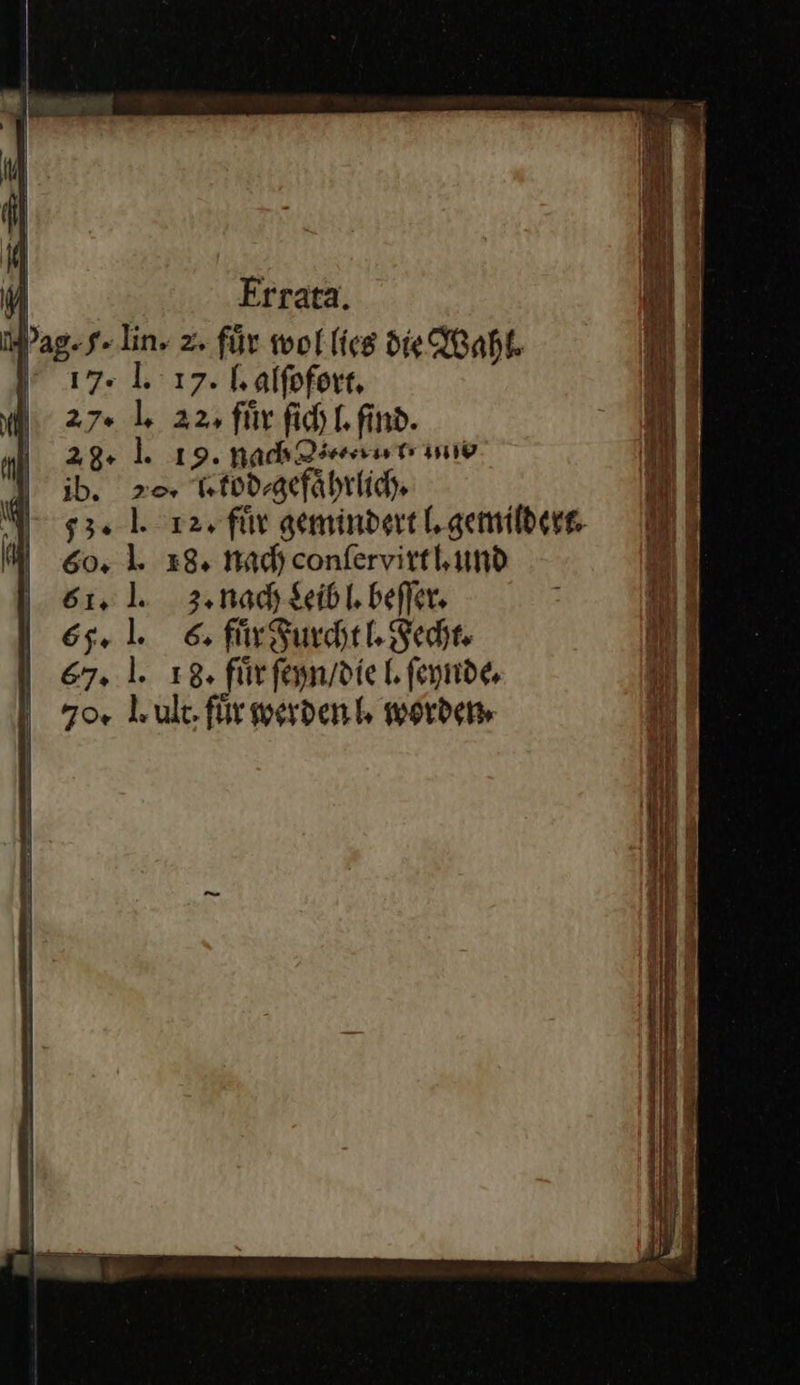 Errata.
Pag. 5. lin. 2. fuͤr wol lies die Wahl.
17. l. 17. l. alſofort.
27. l. 22. fuͤr ſich l. ſind.
28. l. 19. nach
ib. 20. l. tod-gefaͤhrlich.
53. l. 12. fuͤr gemindert l. gemildert.
60. l. 18. nach conſervirt l. und
61. l. 3. nach Leib l. beſſer.
65. l. 6. fuͤr Furcht l. Fecht.
67. l. 18. fuͤr ſeyn/die l. ſeynde.
70. l. ult. fuͤr werden l. worden.